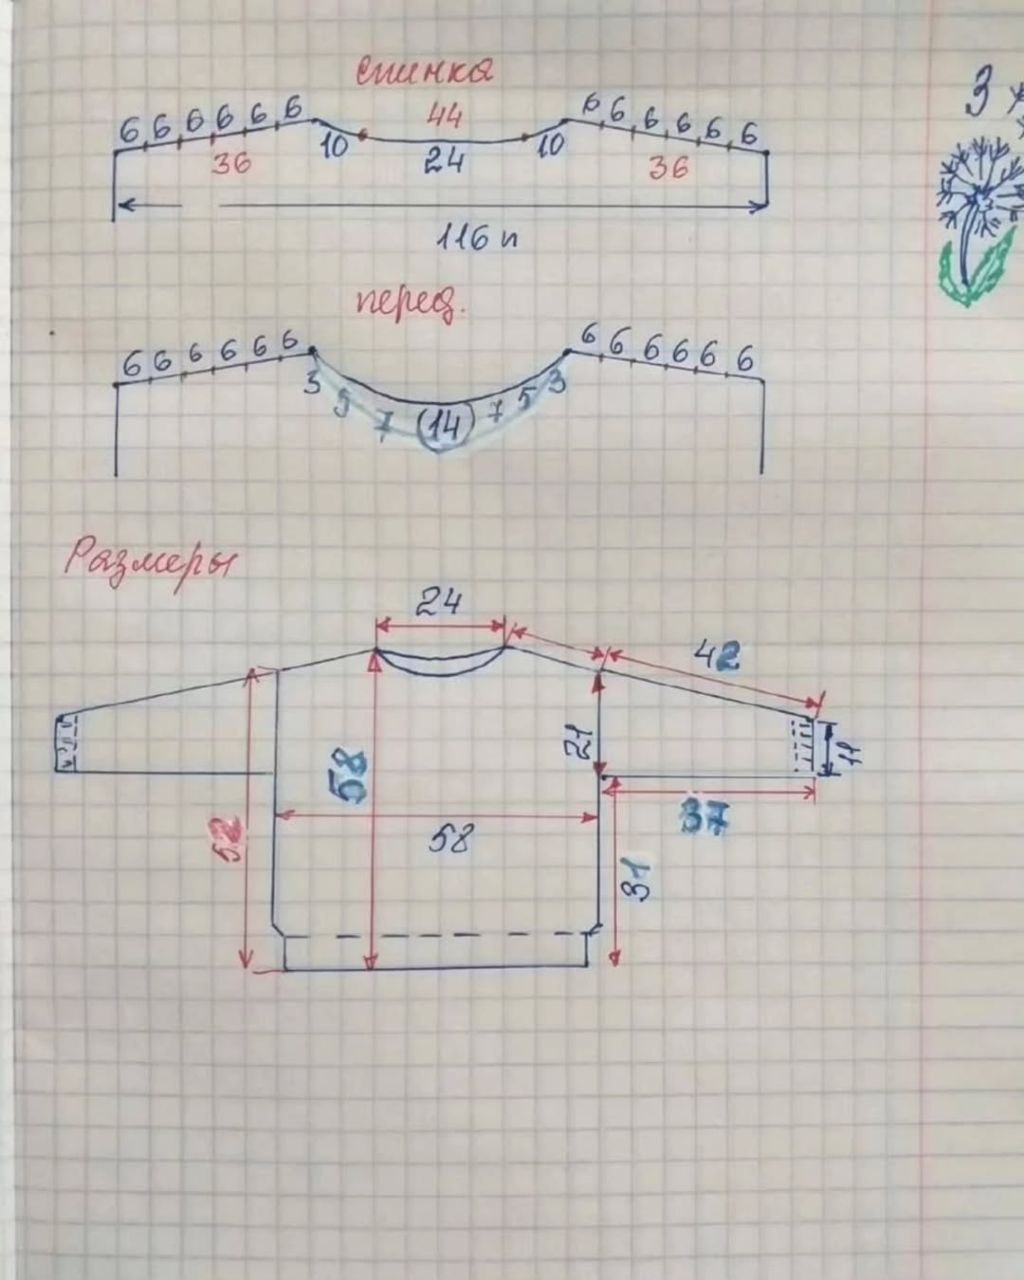 спинка
3
6 6 6 6 6 6 44 6 6 6 6 6 6
36 10 24 10 36
116 п
перед.
6 6 6 6 6 6 6 6 6 6 6 6
3 5 7 14 7 5 3
Размеры
24
42
21
11
58
37
52
58
31